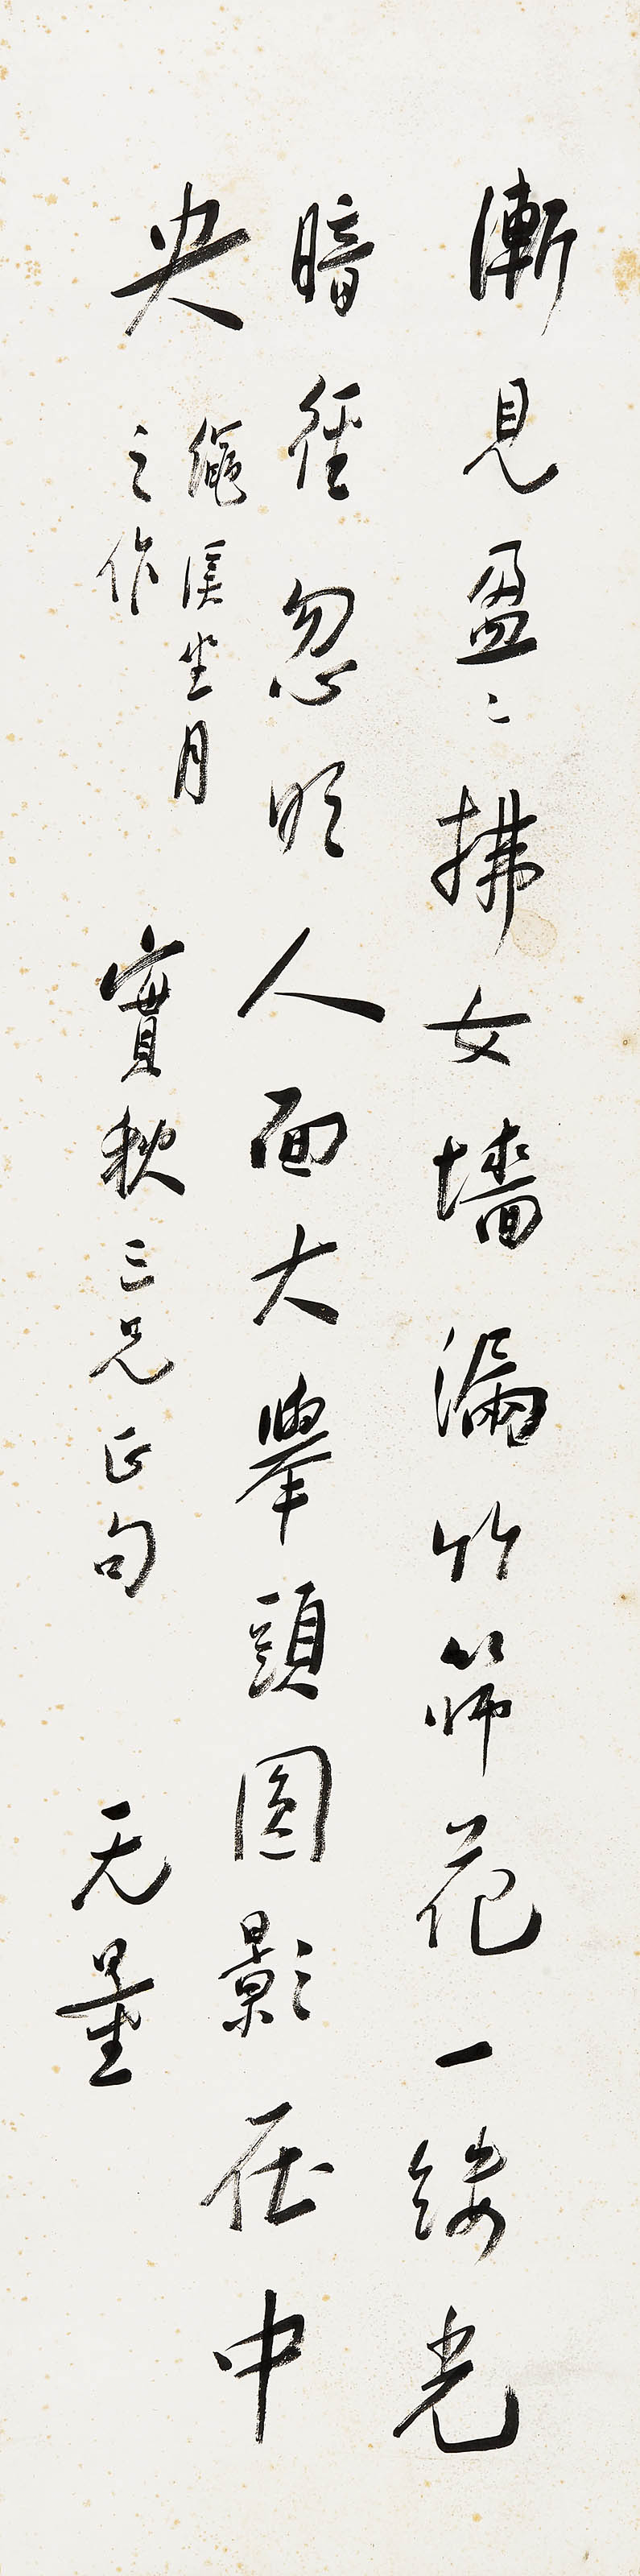 漸見盈〻拂女墻漏竹篩花一縷光
暗徑忽明人面大舉頭圓影在中
央
繩坐月
之作
實秋三兄正句
无量